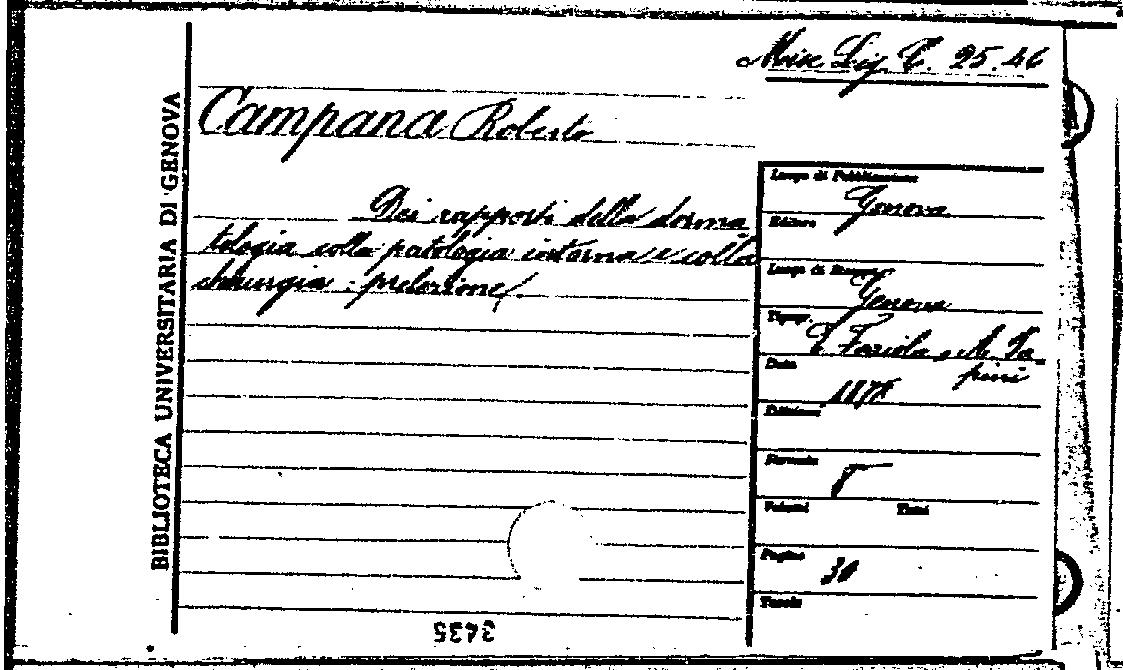 Misc Lig. C. 25.46
BIBLIOTECA UNIVERSITARIA DI GENOVA
Campana Roberto
Dei rapporti della derma-
tologia colla patologia interna e colla
chirurgia: prelezione.
Luogo di Pubblicazione
Genova
Editore
Luogo di Stampa
Genova
Tipogr.
Faziola, e M. Pa-
pini
Data
1878
Edizione
Formato
8
Volumi Tomi
Pagine
30
Tavole
3435